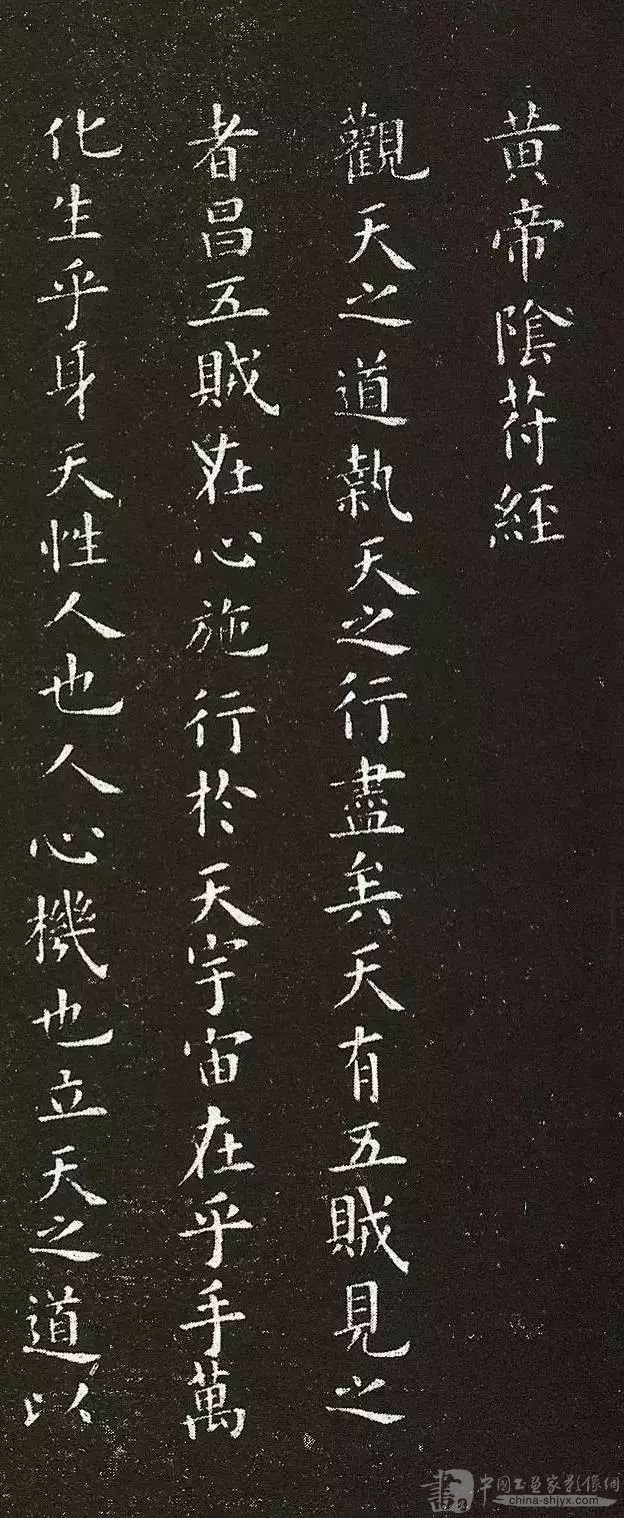 黄帝陰符經
觀天之道執天之行盡矣天有五賊見之
者昌五賊在心施行於天宇宙在乎手萬
化生乎身天性人也人心機也立天之道以
中国书画家影像網
china-shjyx.com